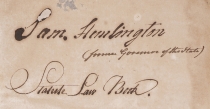 Sam. Huntington
(former Governor of the State)
Statute Law Book.